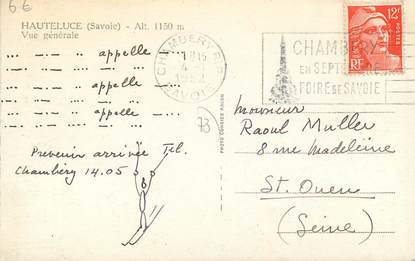 66
HAUTELUCE (Savoie) - Alt. 1150 m
Vue générale
appelle
appelle
appelle
Prevenir arrivée Tel.
Chambéry 14.05
CHAMBERY R.P.
SAVOIE
12F
POSTES
RF
CHAMBERY
EN SEPTEMBRE
FOIRE DE SAVOIE
73
Monsieur
Raoul Muller
8 rue Madeleine
St. Ouen
(Seine)